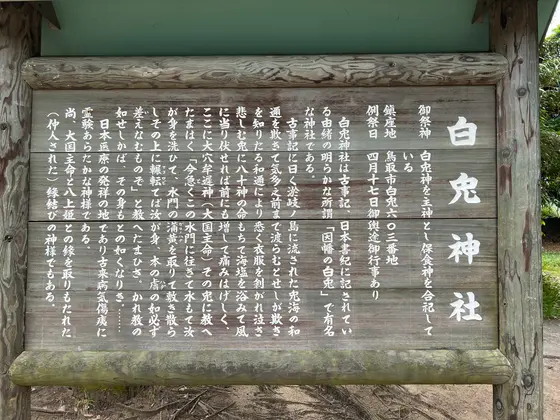 白兎神社
御祭神　白兎神を主神とし保食神を合祀して
いる
鎮座地　鳥取市白兎六〇三番地
例祭日　四月十七日御輿渡御行事あり
白兎神社は古事記、日本書紀に記されてい
る由緒の明らかな所謂「因幡の白兎」で有名
な神社である。
古事記に曰く淤岐ノ島に流された兎海の和
通を欺きて気多之前まで渡らむとせしが欺き
を知りたる和通により悉く衣服を剥がれ泣き
悲しむに八十神の命もちて海塩を浴みて風
に当り伏せれば前にも増して痛みはげしく、
ここに大穴牟遅神（大国主命）その兎に教へ
たまはく「今急くこの水門に往きて水もて汝
が身を洗ひて、水門の蒲黄を取りて敷き散ら
しその上に輾転てば汝が身、本の膚の如必ず
差えなむものぞ」と教へたまひき、かれ教の
如せしかば、その身もとの如くなりき、……
日本医療の発祥の地であり古来病気傷痍に
霊験あらたかな神様である。
尚、大国主命と八上姫との縁を取りもたれた
（仲人された）縁結びの神様でもある。